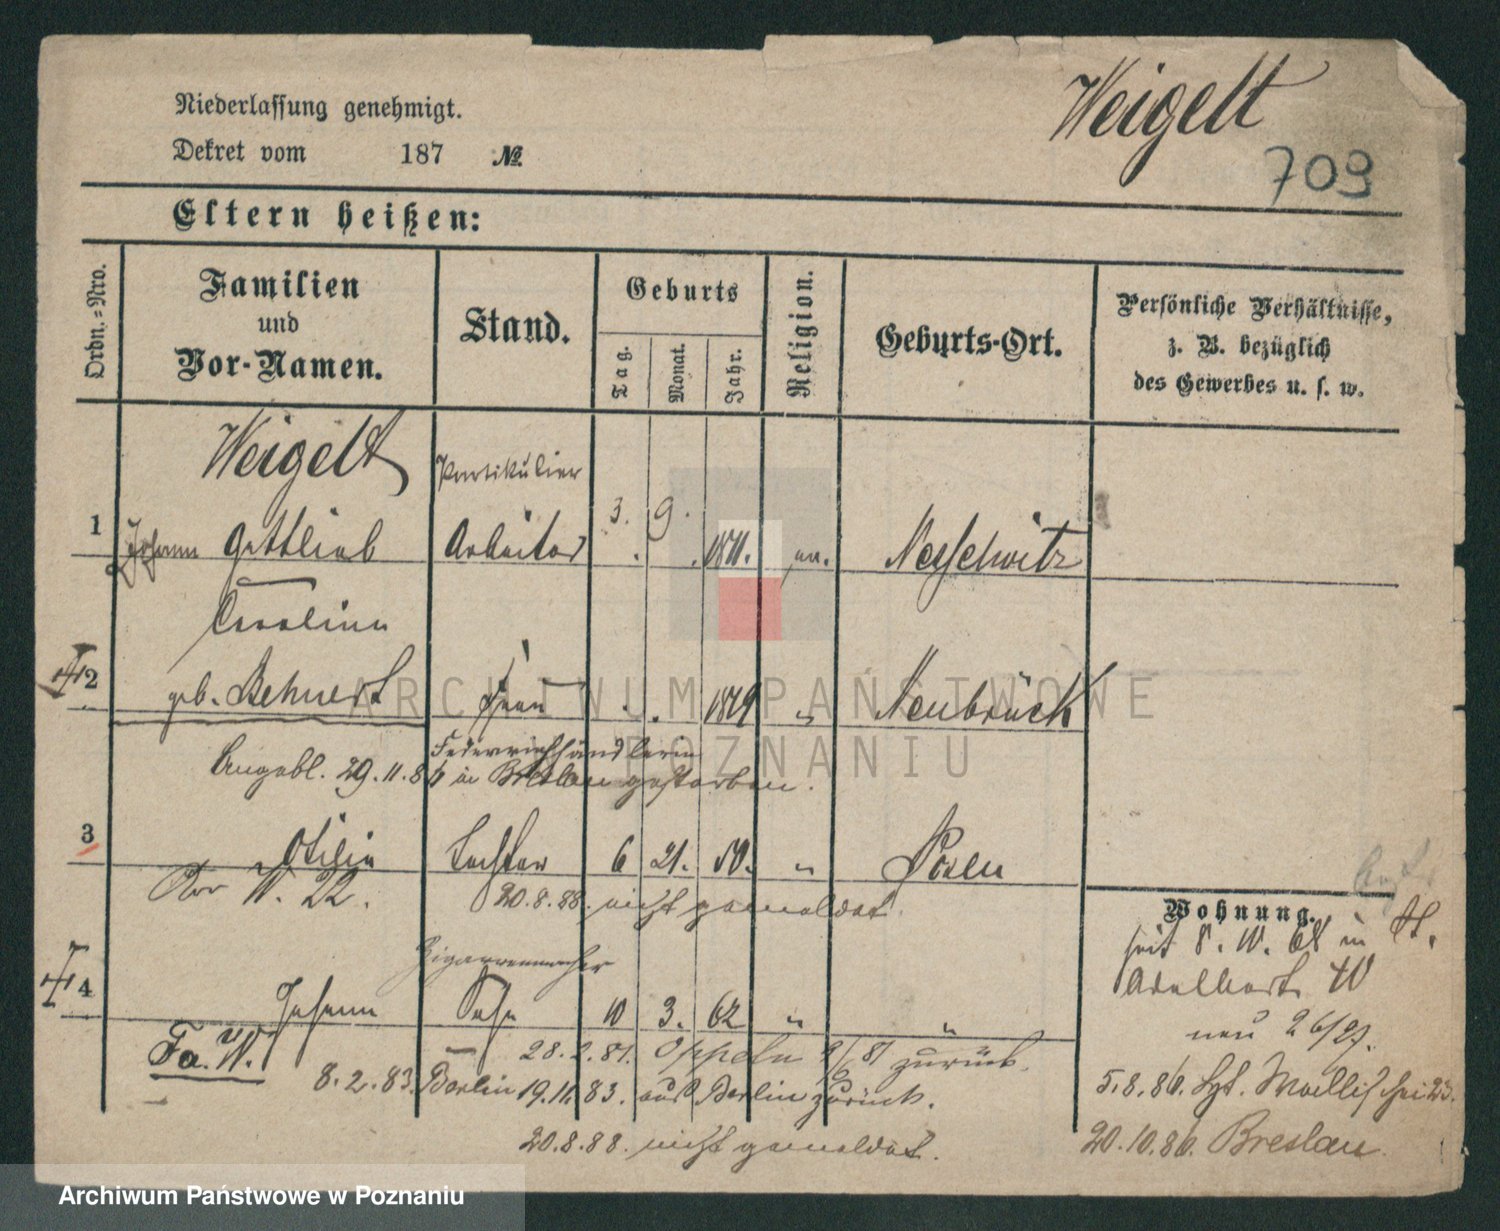 Niederlassung genehmigt.
Weigelt
Dekret vom 187 №
709
Eltern heißen:
Ordn.=Nro.
Familien
und
Vor-Namen.
Stand.
Geburts
Tag.
Monat.
Jahr.
Religion.
Geburts-Ort.
Persönliche Verhältnisse,
z. B. bezüglich
des Gewerbes u. s. w.
Weigelt
Partikulier
1 Johann Gottlieb Arbeiter 3. 9. 1811. ev. Nesschwitz
Caroline
2 geb. Behnert Frau 1819 " Neubrück
Federviehhändlerin
Angebl. 29.11.86 in Breslau gestorben.
3 Otilie Tochter 6 21. 50. " Posen
W. 22. 20.8.88. nicht gemeldet.
Zigarrenmacher
4 Johann Sohn 10 3. 62 " "
Fa. W. 28.2.81. Oppeln 9/6 81 zurück.
8.2.83. Berlin 19.11.83. aus Berlin zurück.
20.8.88. nicht gemeldet.
Wohnung.
seit 8. 10. 68 in St.
Adalbert 40
neu 26/27.
5.8.86.
20.10.86. Breslau
ARCHIWUM PAŃSTWOWE
POZNANIU
Archiwum Państwowe w Poznaniu